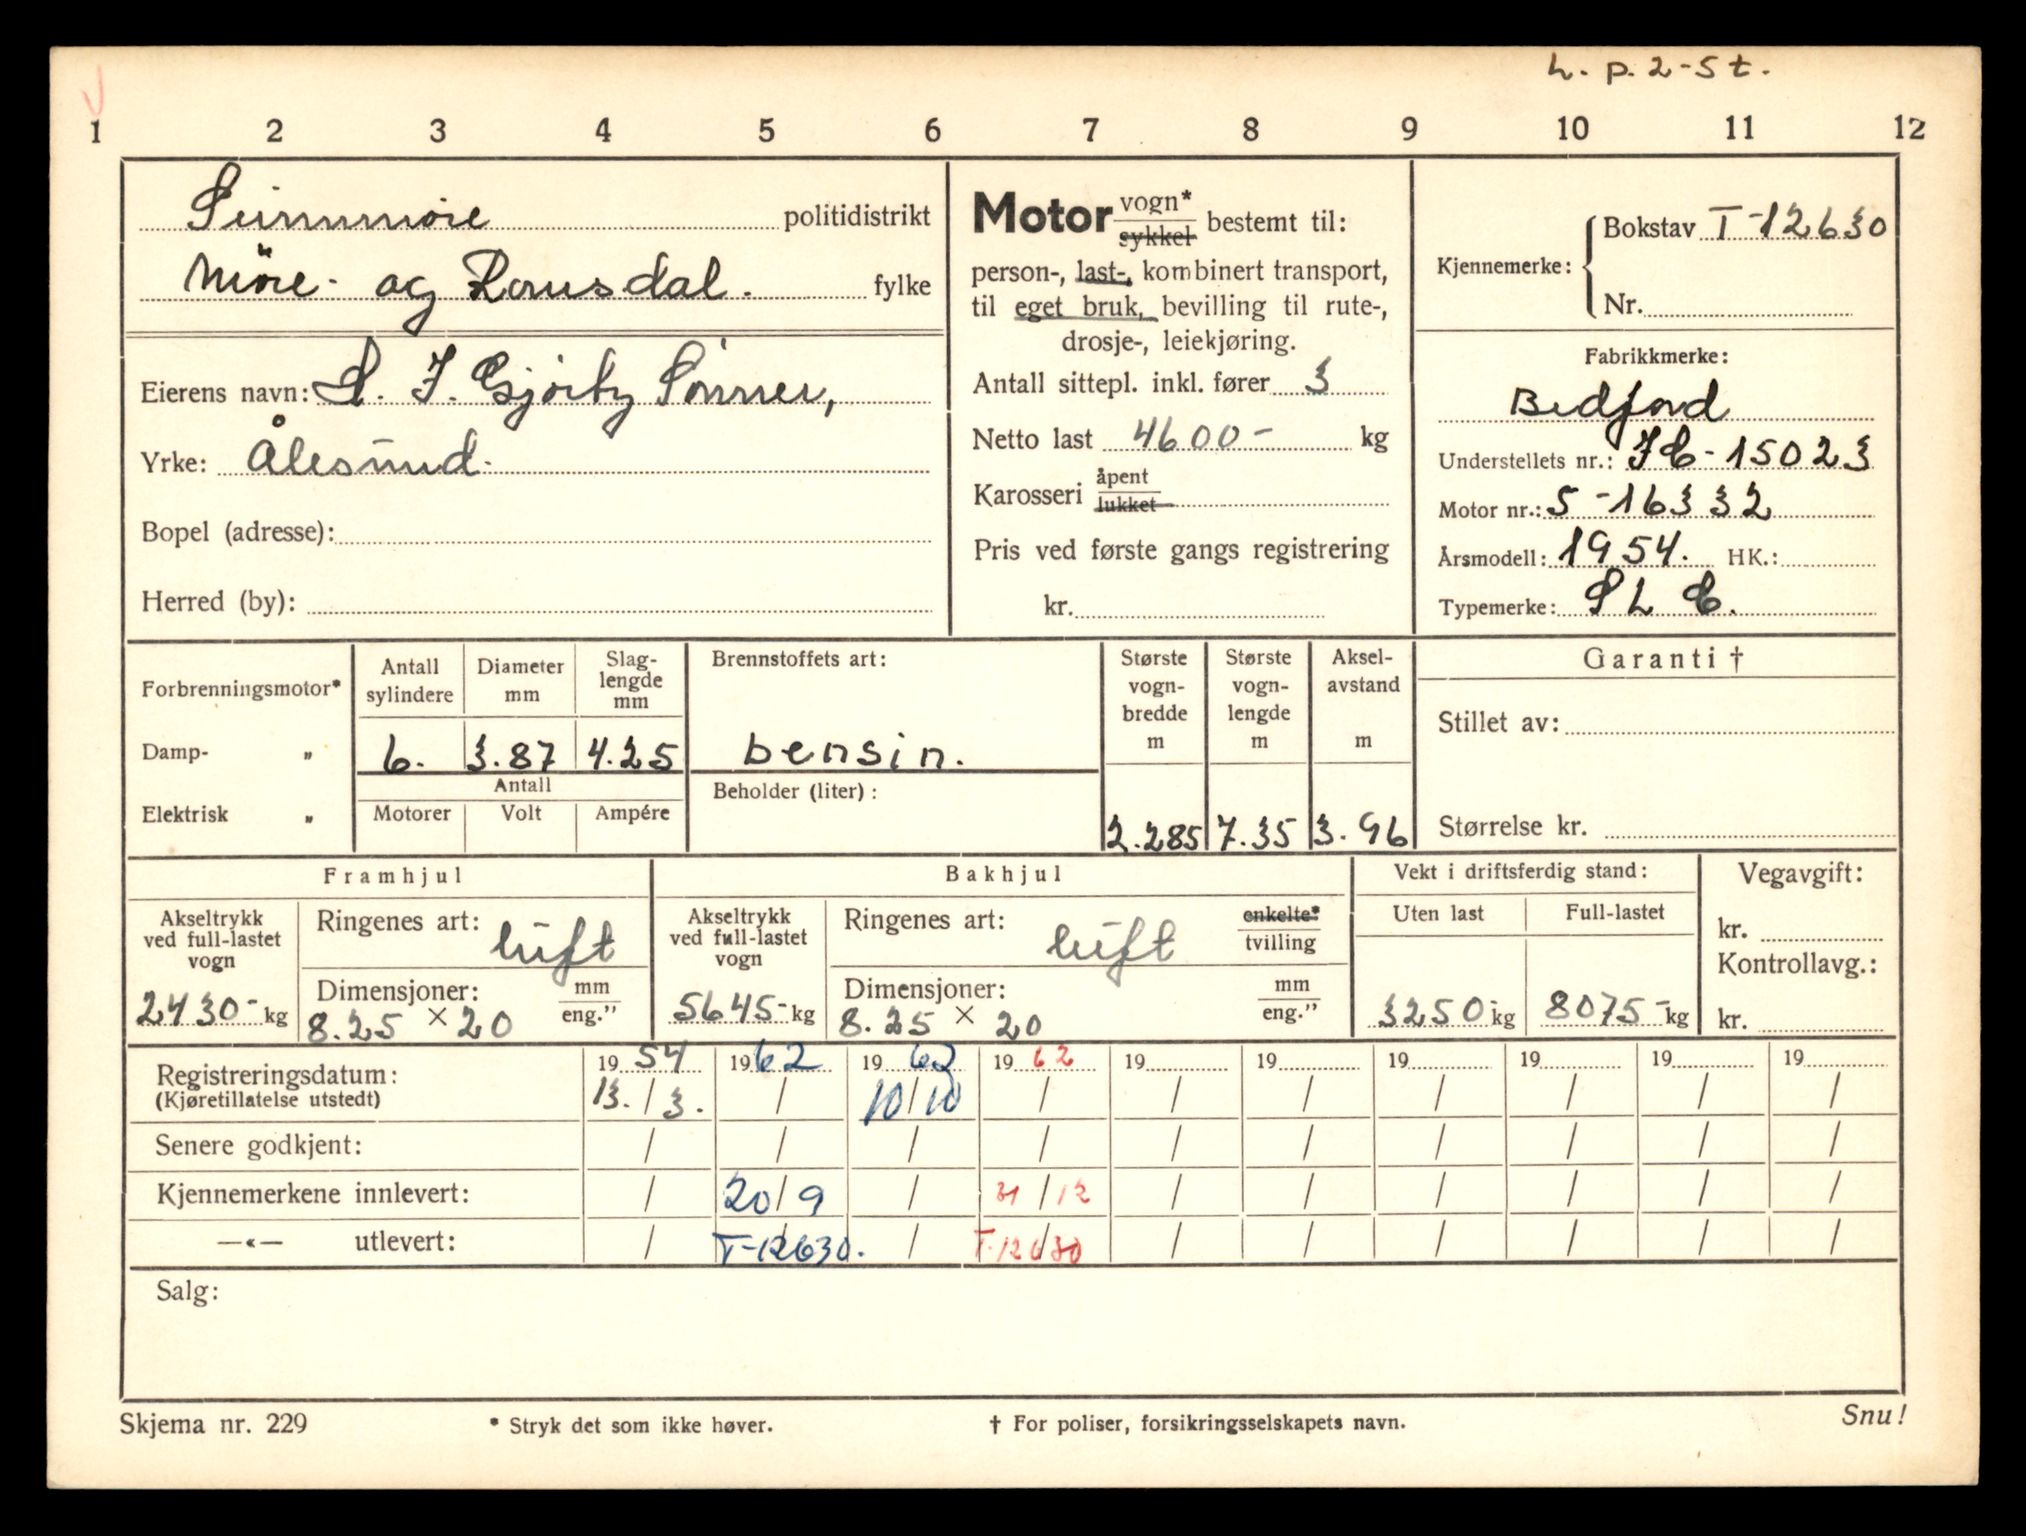 L. p. 2-5 t.
1 2 3 4 5 6 7 8 9 10 11 12
Sunnmøre politidistrikt
Møre- og Romsdal. fylke
Eierens navn: S. J. Gjørtz Sønner,
Yrke: Ålesund.
Bopel (adresse):
Herred (by):
Motor vogn* sykkel bestemt til:
person-, last-, kombinert transport,
til eget bruk, bevilling til rute-,
drosje-, leiekjøring.
Antall sittepl. inkl. fører 3
Netto last 4600- kg
Karosseri åpent lukket
Pris ved første gangs registrering
kr.
Kjennemerke: Bokstav T-12630
Nr.
Fabrikkmerke:
Bedford
Understellets nr.: JC-15023
Motor nr.: S-16332
Årsmodell: 1954. HK.:
Typemerke: S L C.
Forbrenningsmotor*
Damp- "
Elektrisk "
Antall sylindere Diameter mm Slag-lengde mm
6. 3.87 4.25
Antall
Motorer Volt Ampére
Brennstoffets art:
bensin.
Beholder (liter):
Største vogn-bredde m Største vogn-lengde m Aksel-avstand m
2.285 7.35 3.96
Garanti †
Stillet av:
Størrelse kr.
Framhjul
Akseltrykk ved full-lastet vogn
2430- kg
Ringenes art: luft
Dimensjoner: mm eng."
8.25 × 20
Bakhjul
Akseltrykk ved full-lastet vogn
5645- kg
Ringenes art: luft enkelte* tvilling
Dimensjoner: mm eng."
8.25 × 20
Vekt i driftsferdig stand:
Uten last Full-lastet
3250- kg 8075- kg
Vegavgift:
kr.
Kontrollavg.:
kr.
Registreringsdatum: 19 54 19 62 19 62 19 62 19 19 19 19 19 19
(Kjøretillatelse utstedt) 13. / 3. / 10/10 / / / / / / /
Senere godkjent: / / / / / / / / / /
Kjennemerkene innlevert: / 20/9 / 31/12 / / / / / /
—«— utlevert: / T-12630. / T-12630 / / / / / /
Salg:
Skjema nr. 229 * Stryk det som ikke høver. † For poliser, forsikringsselskapets navn. Snu!